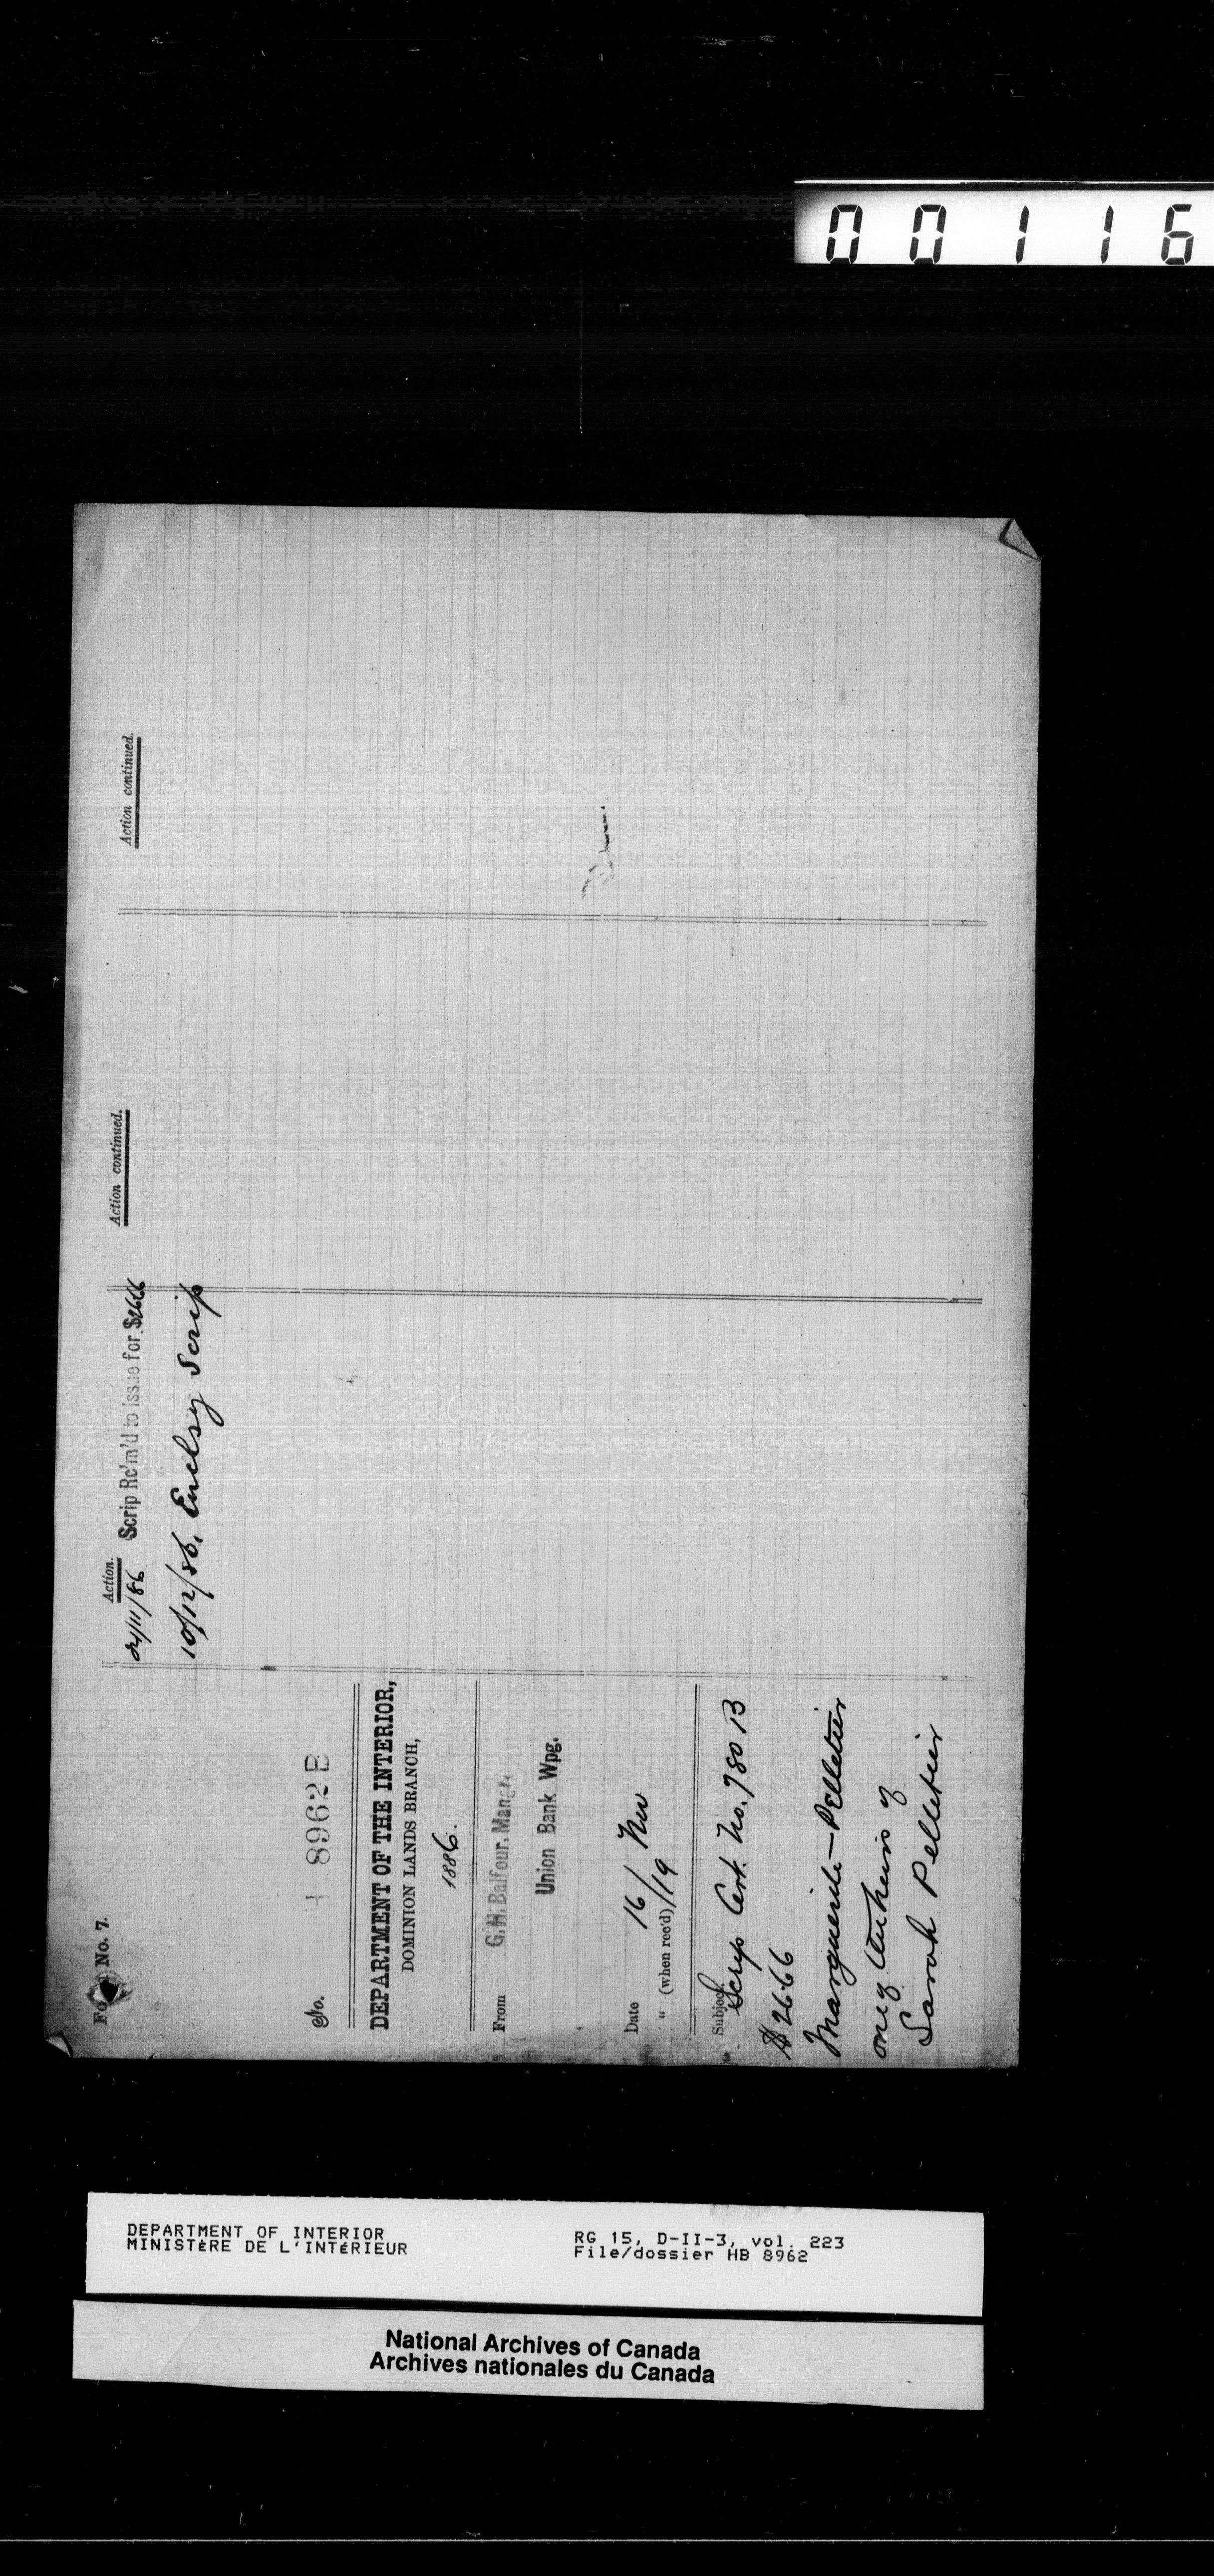 00116
Form No. 7.
No.
H 8962 B
DEPARTMENT OF THE INTERIOR,
DOMINION LANDS BRANCH,
1886.
From G.H. Balfour, Mangr,
Union Bank Wpg.
Date 16/ Nov
" (when rec'd) /19
Subject
Scrip Cert. No. 780 B
$26.66
Marguerite Pelletier
one of the heirs of
Sarah Pelletier
Action.
24/11/86 Scrip Rc'm'd to issue for $26.66
10/12/86, Enclsg Scrip
Action continued.
Action continued.
DEPARTMENT OF INTERIOR
MINISTÈRE DE L'INTÉRIEUR
RG 15, D-II-3, vol. 223
File/dossier HB 8962
National Archives of Canada
Archives nationales du Canada